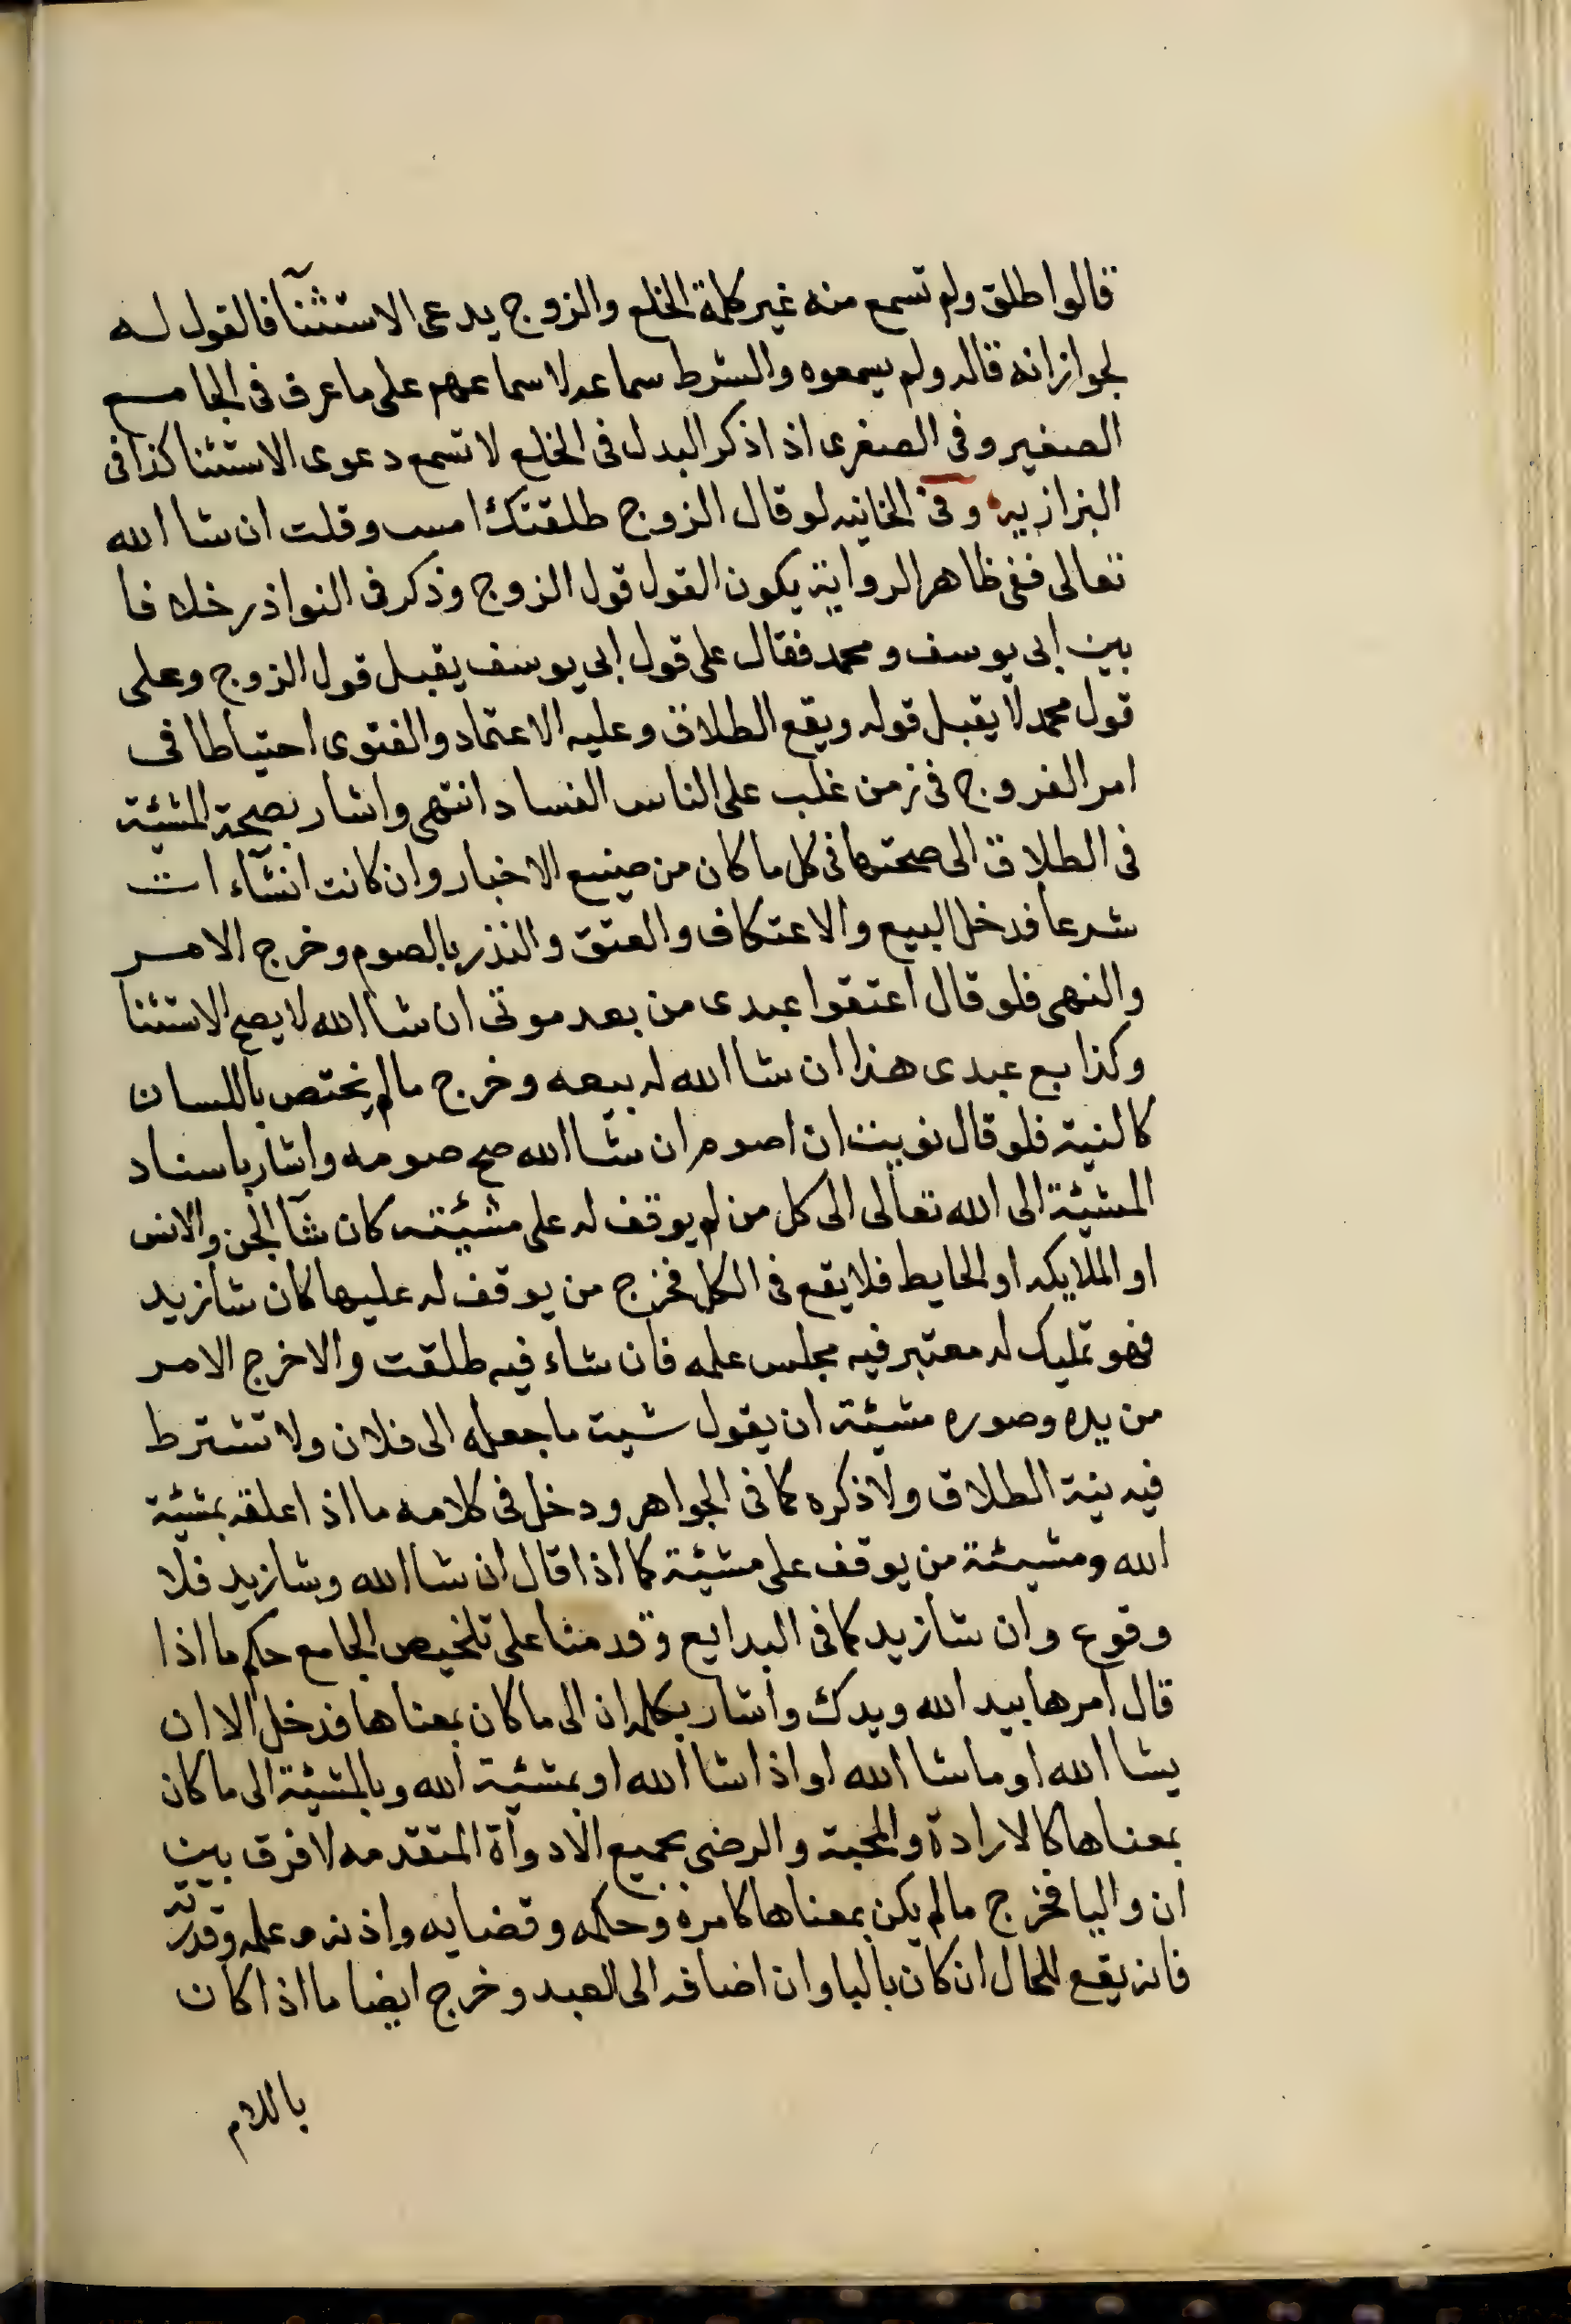 قالوا طلق ولم تسمع منه غير كلمة الخلع والزوج يدعى الاستثنآ فالقول له
لجواز انه قاله ولم يسمعوه والشرط سماعه لا سماعهم على ما عرف فى الجامع
الصغير وفى الصغرى اذا ذكر البدل فى الخلع لا تسمع دعوى الاستثنا كذا فى
البزازيه وفى الخانيه لو قال الزوج طلقتك امس وقلت ان شا الله
تعالى ففى ظاهر الرواية يكون القول قول الزوج وذكر فى النواذر خلافا
بين ابى يوسف ومحمد فقال على قول ابى يوسف يقبل قول الزوج وعلى
قول محمد لا يقبل قوله ويقع الطلاق وعليه الاعتماد والفتوى احتياطا فى
امر الفروج فى زمن غلب على الناس الفساد انتهى واشار بصحة المشئة
فى الطلاق الى صحتها فى كل ما كان من صيغ الاخبار وان كانت انشآءات
شرعا فدخل البيع والاعتكاف والعتق والنذر بالصوم وخرج الامر
والنهى فلو قال اعتقوا عبدى من بعد موتى ان شا الله لا يصح الاستثنا
وكذا بع عبدى هذا ان شا الله له بيعه وخرج مالم يختص باللسان
كالنية فلو قال نويت ان اصوم ان شا الله صح صومه واشار باسناد
المشئة الى الله تعالى الى كل من لم يوقف له على مشيئته كان شآ الجن والانس
او الملايكه او الحايط فلا يقع فى الكل فخرج من يوقف له عليها كان شا زيد
فهو تمليك له معتبر فيه مجلس علمه فان شاء فيه طلقت والا خرج الامر
من يده وصوره مشئة ان يقول شيت ما جعله الى فلان ولا تشترط
فيه نية الطلاق ولا ذكره كما فى الجواهر ودخل فى كلامه ما اذا علقه بمشئة
الله ومشيئة من يوقف على مشئة كما اذا قال ان شا الله وشا زيد فلا
وقوع وان شا زيد كما فى البدايع وقدمنا على تلخيص الجامع حكم ما اذا
قال امرها بيد الله ويدك واشار بكلمه ان الى ما كان بمعناها فدخل الا ان
يشا الله او ما شا الله او اذا شا الله او بمشئة الله وبالمشئة الى ما كان
بمعناها كالارادة والمحبة والرضى بجميع الادوآة المتقدمه لا فرق بين
ان واليا فخرج مالم يكن بمعناها كامره وحكمه وقضايه واذنه وعلمه وقدرته
فانه يقع للحال ان كان باليا وان اضافه الى العبد وخرج ايضا ما اذا كان
باللام